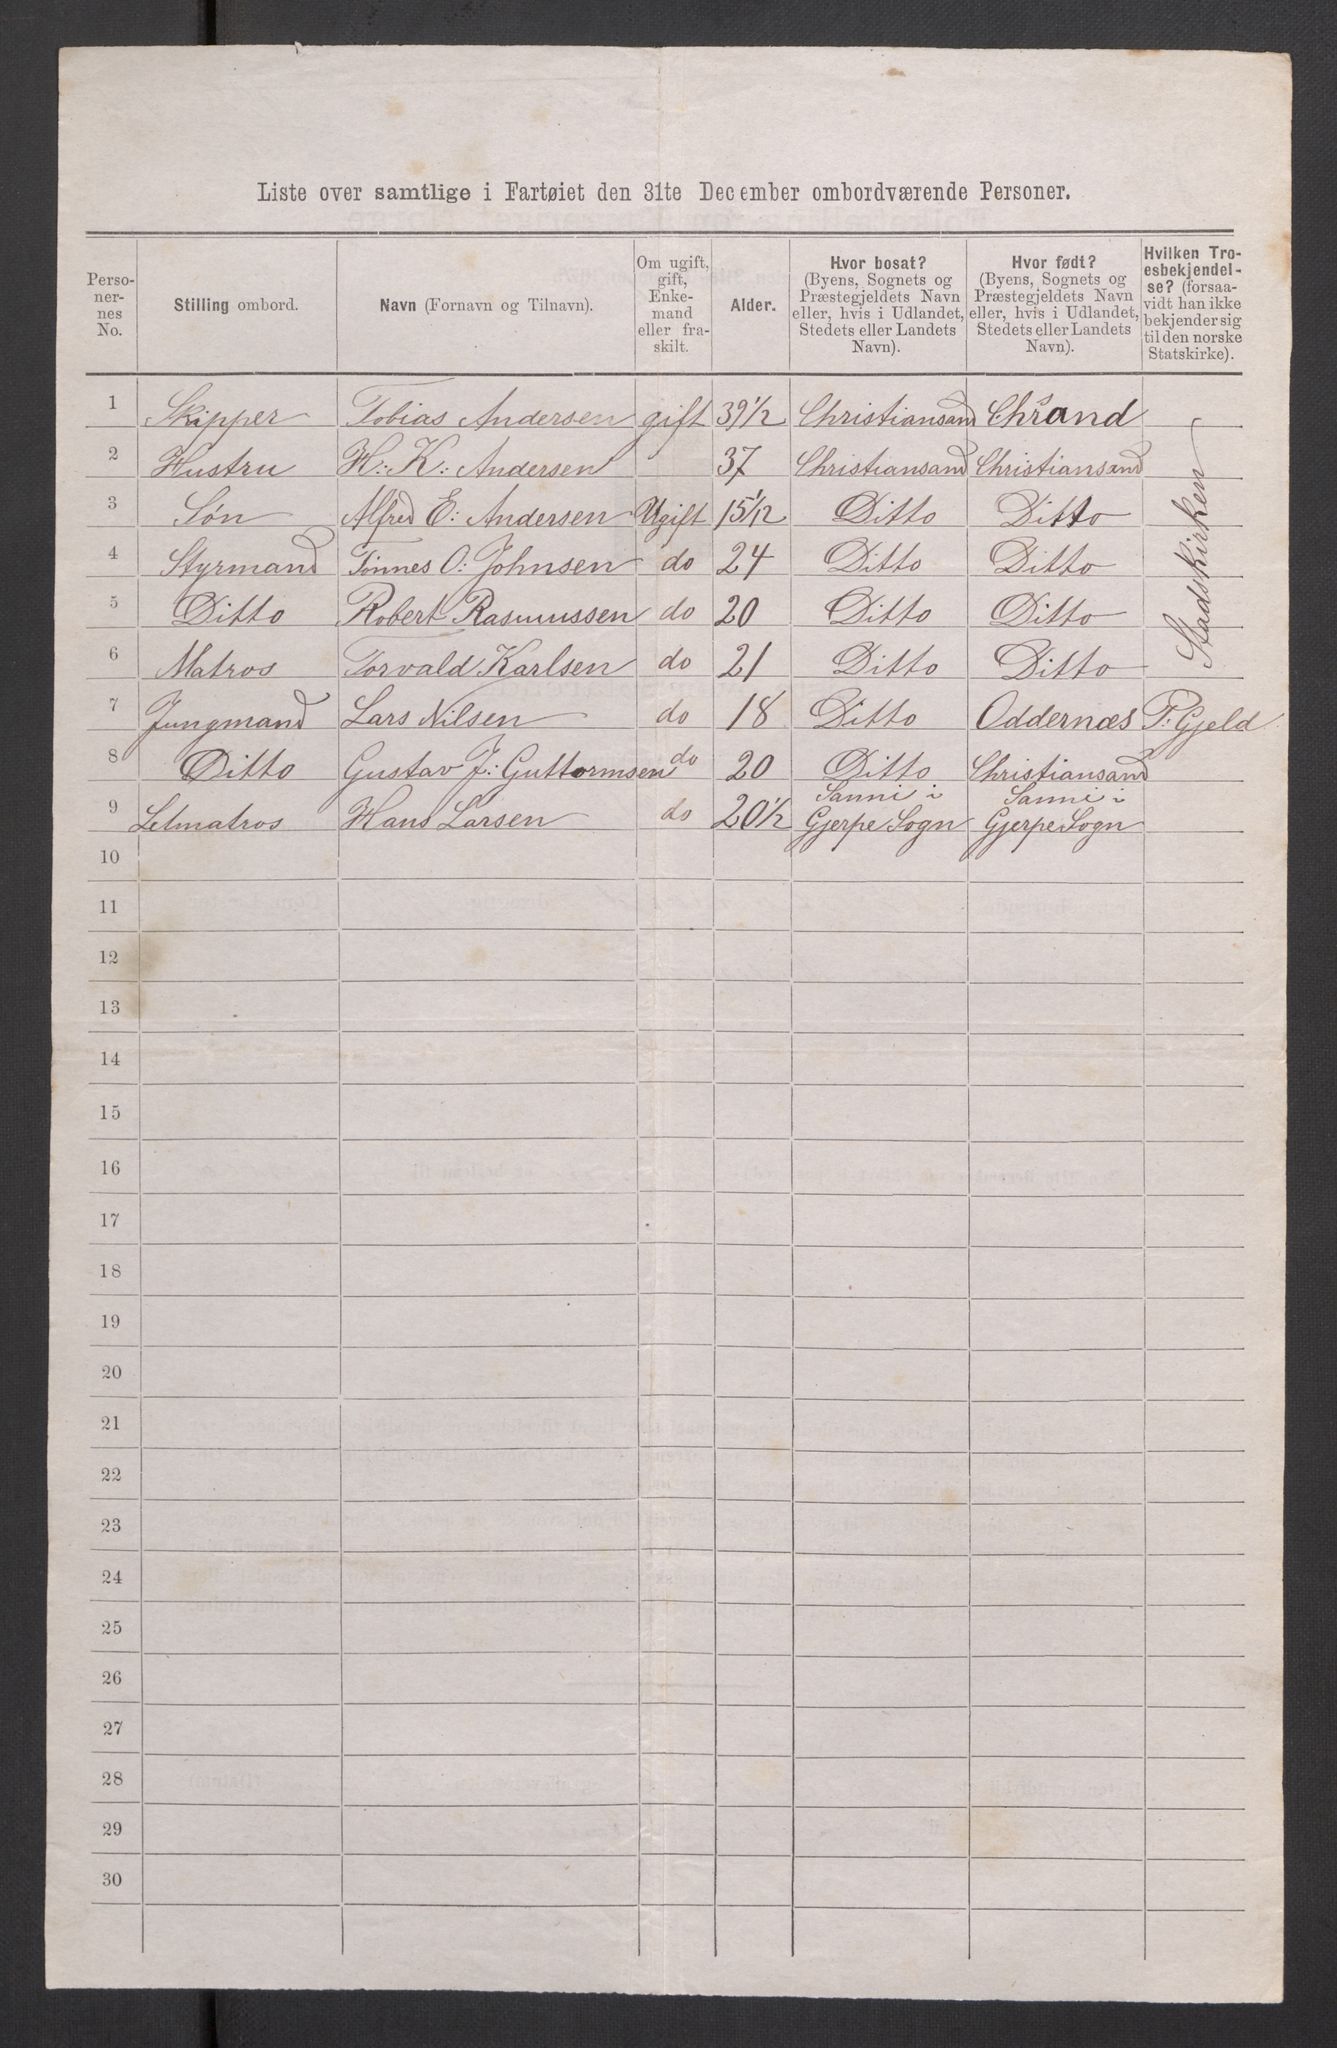 Liste over samtlige i Fartøiet den 31te December ombordværende Personer.
Perso-
ner-
nes
No.
Stilling ombord.
Navn (Fornavn og Tilnavn).
Om ugift,
gift,
Enke-
mand
eller fra-
skilt.
Alder.
Hvor bosat?
(Byens, Sognets og
Præstegjeldets Navn
eller, hvis i Udlandet,
Stedets eller Landets
Navn).
Hvor født?
(Byens, Sognets og
Præstegjeldets Navn
eller, hvis i Udlandet,
Stedets eller Landets
Navn).
Hvilken Tro-
esbekjendel-
se? (forsaa-
vidt han ikke
bekjender sig
til den norske
Statskirke).
1 Skipper Tobias Andersen gift 39 1/2 Christiansand Chrand
2 Hustru H: K: Andersen 37 Christiansand Christiansand
3 Søn Alfred E: Andersen Ugift 15 1/12 Ditto Ditto
4 Styrmand Tönnes O: Johnsen do 24 Ditto Ditto
5 Ditto Robert Rasmussen do 20 Ditto Ditto
6 Matros Torvald Karlsen do 21 Ditto Ditto
Stadskirken
7 Jungmand Lars Nilsen do 18 Ditto Oddernæs P: Gjeld
8 Ditto Gustav J: Guttormsen do 20 Ditto Christiansand
9 Letmatros Hans Larsen do 20 1/2 Sanni i Gjerpe Sogn Sanni i Gjerpe Sogn
10
11
12
13
14
15
16
17
18
19
20
21
22
23
24
25
26
27
28
29
30